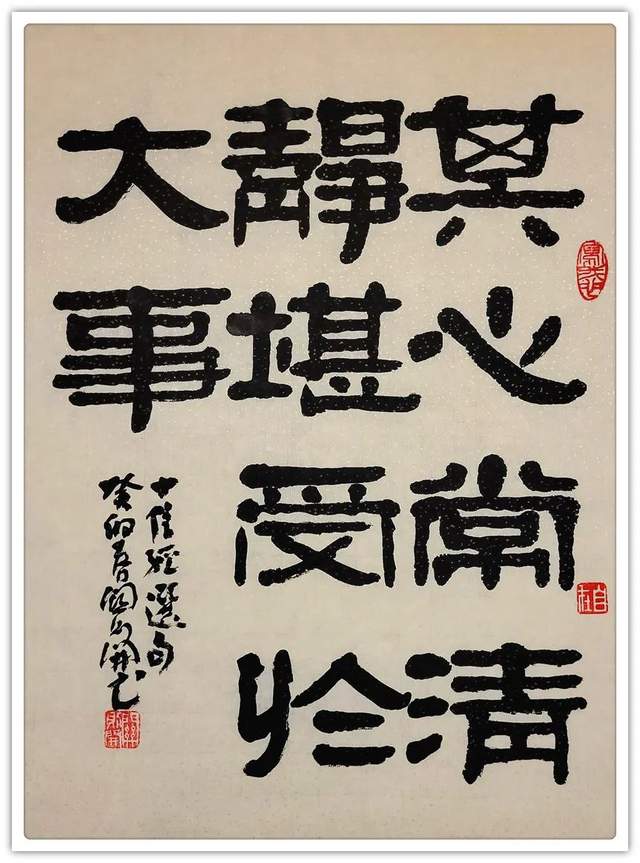 其心常清
靜堪受於
大事
十住經選句
癸卯春